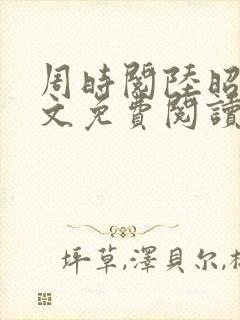 周時閱陸昭
文免費閱讀
坪草,澤貝尔,村